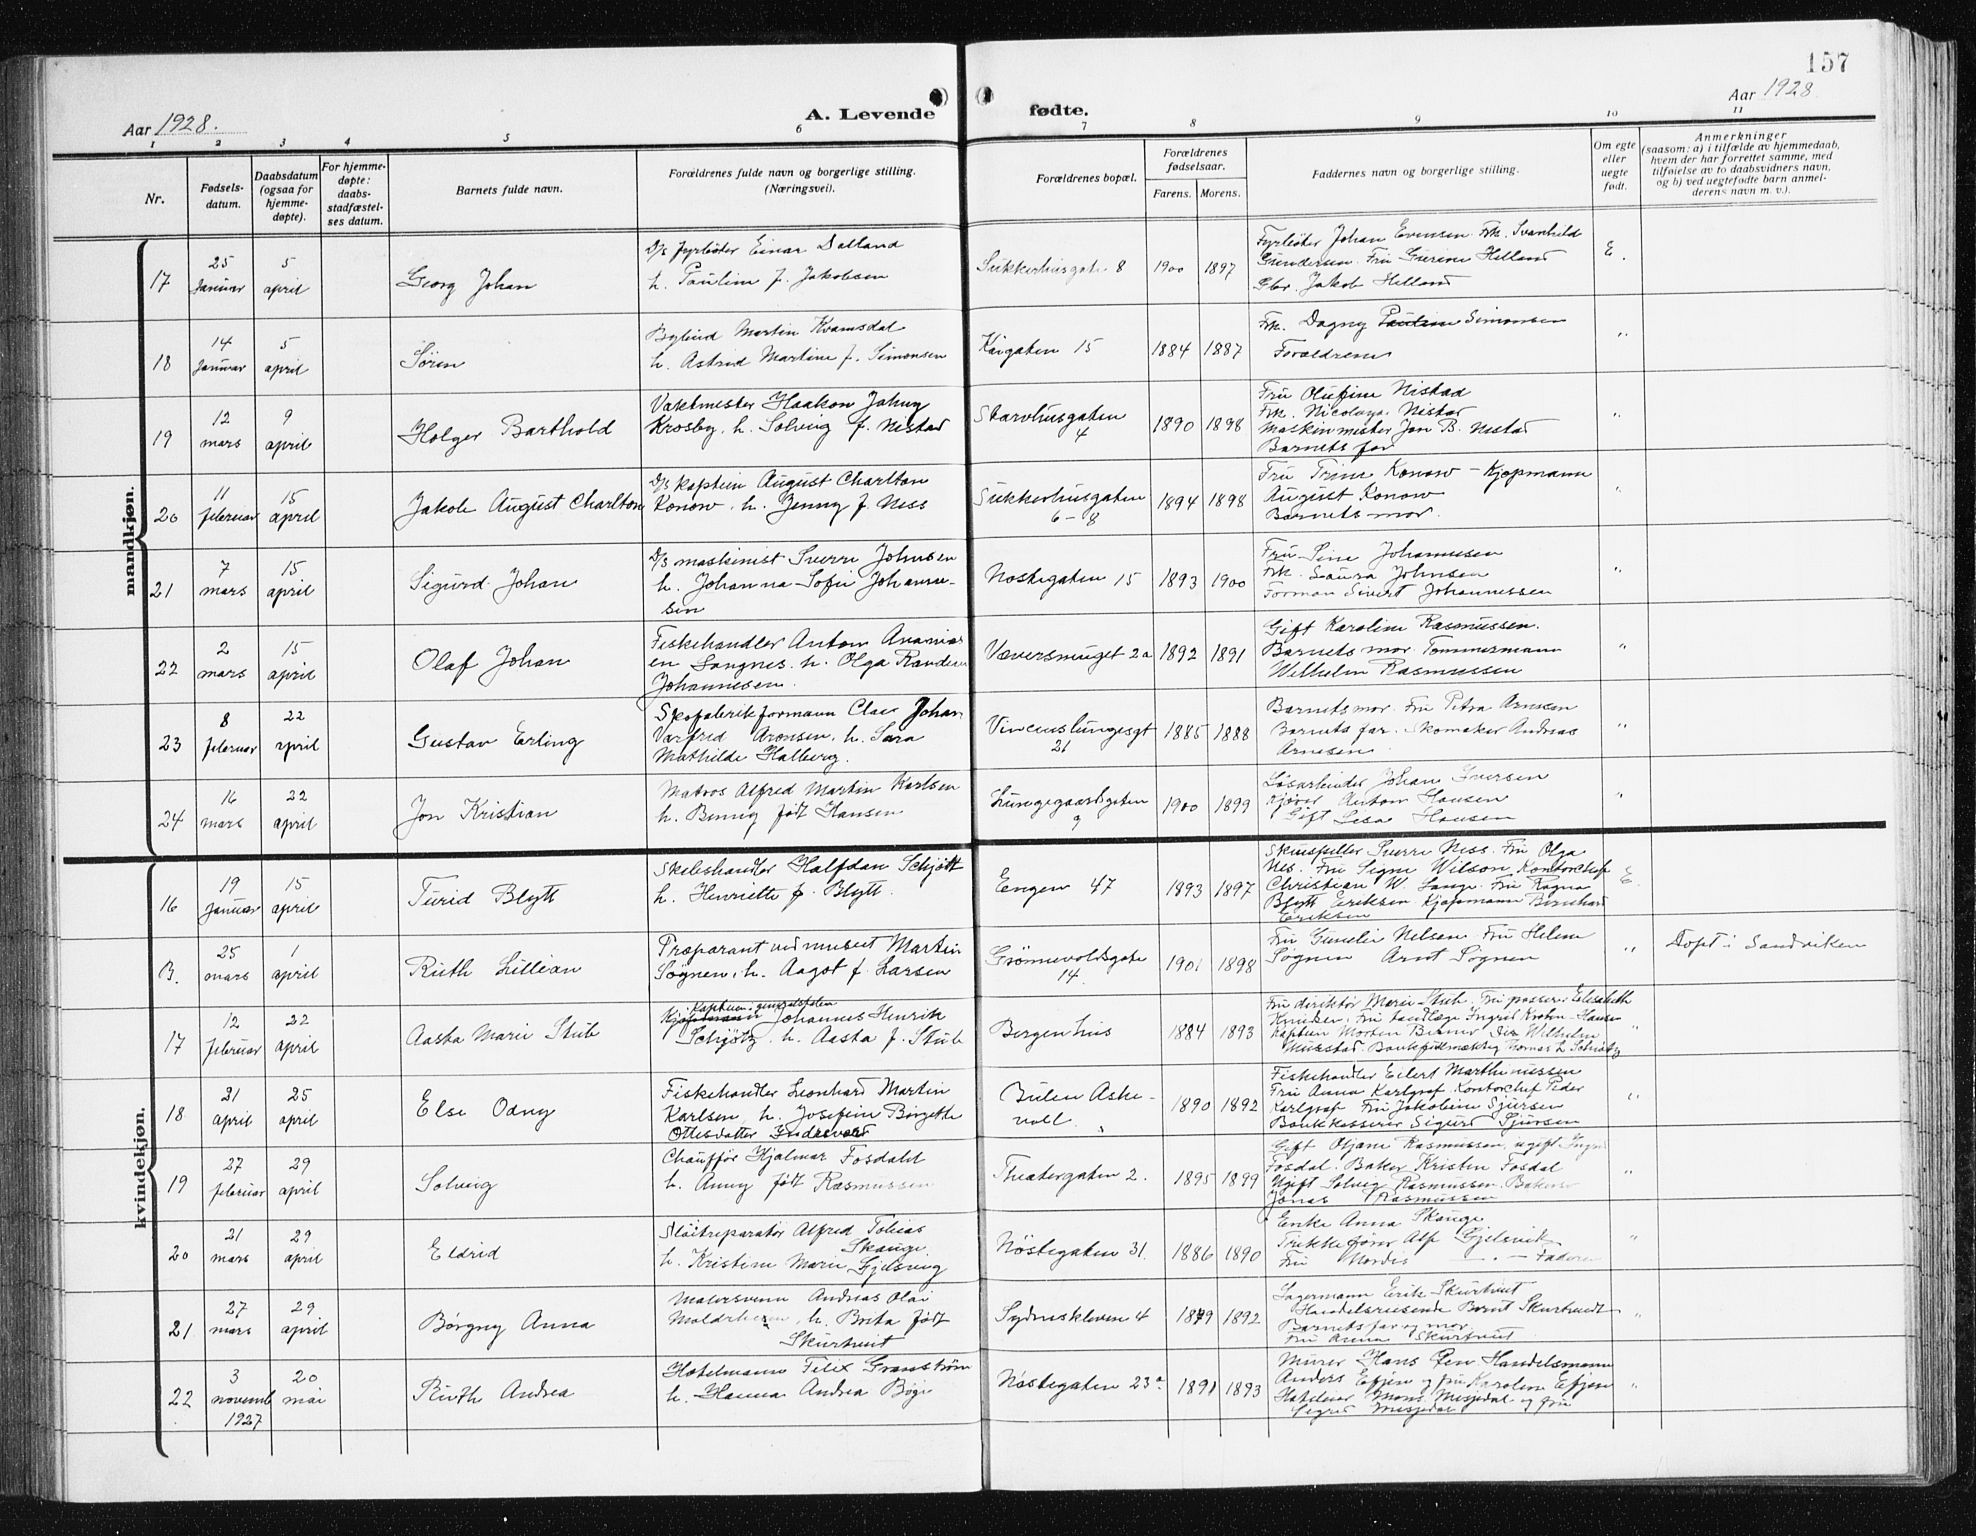 157
Aar 1928.
A. Levende fødte.
Aar 1928
1 2 3 4 5 6 7 8 9 10 11
Nr.
Fødsels-
datum.
Daabsdatum
(ogsaa for
hjemme-
døpte).
For hjemme-
døpte:
daabs
stadfæstel-
ses datum.
Barnets fulde navn.
Forældrenes fulde navn og borgerlige stilling.
(Næringsvei).
Forældrenes bopæl.
Forældrenes
fødselsaar.
Farens. Morens.
Faddernes navn og borgerlige stilling.
Om egte
eller
uegte
født.
Anmerkninger
(saasom: a) i tilfælde av hjemmedaab,
hvem der har forrettet samme, med
tilføielse av to daabsvidners navn,
og b) ved uegtefødte barn anmel-
derens navn m. v.).
mandkjøn.
17
25 januar
5 april
Georg Johan
D/s fyrbøter Einar Dalland
h. Pauline f. Jakobsen
Sukkerhusgate 8
1900 1897
Fyrbøter Johan Evensen Frk. Svanhild
Gundersen. Fru Gurine Helland
Gbr. Jakob Helland
E.
18
14 januar
5 april
Søren
Bybud Martin Kvamsdal
h. Astrid Martine f. Simonsen
Kaigaten 15
1884 1887
Frk. Dagny Pauline Simonsen
Forældrene
"
19
12 mars
9 april
Holger Barthold
Vaktmester Haakon Johny
Krosby. h. Solveig f. Nistad
Skarvhusgaten
4
1890 1898
Fru Olufine Nistad
Frk. Nicolaya Nistad
Maskinmester Jon B. Nistad
Barnets far
"
20
11 februar
15 april
Jakob August Charlton
D/s kaptein August Charlton
Konow. h. Jenny f. Ness
Sukkerhusgaten
6-8
1894 1898
Fru Trine Konow - Kjøpmann
August Konow
Barnets mor.
"
21
7 mars
15 april
Sigurd Johan
D/s maskinist Sverre Johnsen
h. Johanna Sofie Johanne-
sen
Nøstegaten 15
1893 1900
Fru Sina Johannesen
Frk. Laura Johnsen
Forman Sivert Johannessen
"
22
2 mars
15 april
Olaf Johan
Fiskehandler Anton Ananias
en Langnes. h. Olga
Johannesen.
Væversmuget 2a
1892 1891
Gift Karoline Rasmussen.
Barnets mor. Tømmermann
Wilhelm Rasmussen
"
23
8 februar
22 april
Gustav Erling
Skofabrikformann Claes Johan
Varfrid Aronsen. h. Sara
Mathilde Halberg.
Vincenslungesgt
21
1885 1888
Barnets mor. Fru Petra Arnesen
Barnets far. Skomaker Andreas
Arnesen
"
24
16 mars
22 april
Jon Kristian
Matros Alfred Martin Karlsen
h. Benny født Hansen
Lungegaardsgaten
9
1900 1899
Løsarbeider Johan Iversen
Kjører Anton Hansen
Gift Lisa Hansen
"
kvindekjøn.
16
19 januar
15 april
Turid Blytt
Skibshandler Halfdan Schjøtt
h. Henriette f. Blytt.
Engen 47
1893 1897
Skuespiller Sverre Ness. Fru Olga
Nes. Fru Signe Wilson Kontorchef
Christian W. Lange. Fru Ragna
Blytt Eriksen. Kjøpmann Bernhard
Eriksen
E.
B.
25 mars
1 april
Ruth Lillian
Præparant ved museet Martin
Sognen. h. Aagot f. Larsen
Grønnevoldsgate
14.
1901 1898
Fru Gunelie Nelsen Fru Helene
Sognen Arnt Sognen
"
Døpt i Sandviken
17
12 februar
22 april
Aasta Marie Stub
Kaptein i generalstaben
Johannes Henrik
Schjøtz. h. Aasta f. Stub
Bergenhus
1884 1893
Fru direktør Marie Stub. Elisabeth
Knudsen. Fru tandlæge Ingrid Krohn-Hansen
Kaptein Morten Wilhelm
Musstad. Thomas L. Schiøtz
"
18
21 april
25 april
Else Odny
Fiskehandler Leonhard Martin
Karlsen h. Josefine Børgethe
Ottesdatter Indrevær
Bulen Aske-
voll.
1890 1892
Fiskehandler Eilert Marthinussen
Fru Anna Karlgraf. Kontorchef Peder
Karlgraf Fru Jakobine Sjursen
Bankkasserer Sigurd Sjursen
"
19
27 februar
29 april
Solveig
Chauffør Hjalmar Fosdahl
h. Anny født Rasmussen
Theatergaten 2.
1895 1899
Gift Oljane Rasmussen, ugift
Fosdal. Baker Kristen Fosdal
Ugift Solveig Rasmussen. Baker
Jonas Rasmussen
"
20
21 mars
29 april
Eldrid
Alfred Tobias
Skauge.
h. Kristine Marie Gjelsvig
Nøstegaten 31.
1886 1890
Enke Anna Skauge
Trikkefører Alf Gjelsvik
Fru Nordis — " — Faderen
"
21
27 mars
29 april
Børgny Anna
Malersvenn Andreas Olai
h. Brita født
Skurtveit
Sydneskleven 4
1879 1892
Lagermann Erik Skurtveit
Handelsreisende Bernt Skurtveit
Barnets far og mor.
Fru Anna Skurtveit
"
22
3 novemb 1927
20 mai
Ruth Andrea
Hotelmann Felix Granstrøm
h. Hanna Andrea Bøge
Nøstegaten 23a
1891 1893
Murer Hans Handelsmann
Anders Efjen og fru Karoline Efjen
Mons Misjedal og fru
Sigrid Misjedal
"